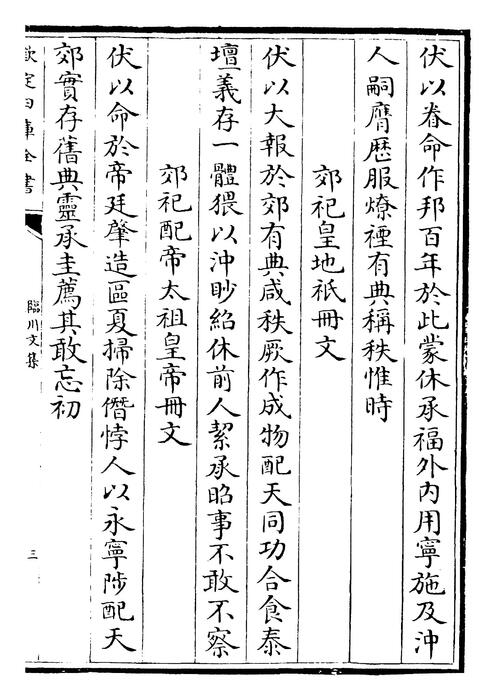 伏以眷命作邦百年於此蒙休承福外内用寧施及沖
人嗣膺歷服燎禋有典稱秩惟時
郊祀皇地祇冊文
伏以大報於郊有典咸秩厥作成物配天同功合食泰
壇義存一體猥以沖眇紹休前人絜承昭事不敢不察
郊祀配帝太祖皇帝冊文
伏以命於帝廷肇造區夏掃除僭悖人以永寧陟配天
郊實存舊典靈承圭薦其敢忘初
欽定四庫全書
臨川文集
三